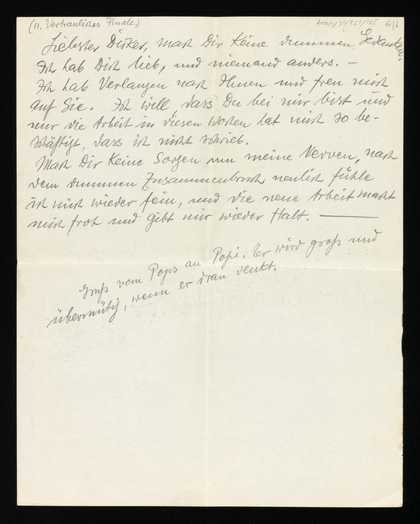 (II. Vertrauliches Finale)
Liebster Dicker, mach Dir keine dummen Gedanken.
Ich hab Dich lieb, und niemand anders. –
Ich hab Verlangen nach Ihnen und freu mich
auf Sie. Ich will, dass Du bei mir bist und
nur die Arbeit in diesen Wochen hat mich so be-
schäftigt, dass ich nicht schrieb.
Mach Dir keine Sorgen um meine Nerven, nach
dem dummen Zusammenbruch neulich fühle
ich mich wieder fein, und die neue Arbeit macht
mich froh und gibt mir wieder Halt. ———
Gruß vom Pops an Popi. Er wird groß und
übermütig, wenn er dran denkt.